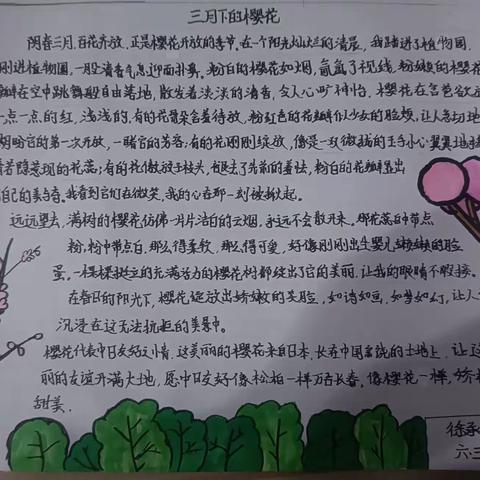 三月下的樱花
阴春三月,百花齐放,正是樱花开放的季节。在一个阳光灿烂的清晨,我踏进了植物园,
刚进植物园,一股清香气息迎面扑鼻。粉白的樱花如烟,氤氲了视线。粉嫩的樱花
瓣在空中跳舞般自由落地,散发着淡淡的清香,令人心旷神怡。樱花在含苞欲
一点一点的红,浅浅的,有的花骨朵含蓄待放,粉红色的花瓣好似少女的脸颊,让人急切地
期盼它的第一次开放,一睹它的芳容。有的花刚刚绽放,像是一双微拢的玉手小心翼翼地
着隐若现的花蕊;有的花傲放于枝头,褪去了先前的羞怯,粉白的花瓣显出
自己的美与奇。我看到它们在微笑,我的心在那一刻被掀起。
远远望去,满树的樱花仿佛一片片洁白的云烟,永远不会散开来。那花蕊白中带点
粉,粉中带点白,那么得柔软,那么得可爱,好像刚刚出生婴儿嫩嫩的脸
蛋。一棵棵挺立的充满活力的樱花树都绽出了它的美丽,让我的眼睛不暇接。
在春日的阳光下,樱花绽放出娇嫩的笑脸,如诗如画,如梦如幻,让人
沉浸在这无法抗拒的美景中。
樱花代表中日友好之情,这美丽的樱花来自日本,长在中国富饶的土地上,让这
丽的友谊开满大地,愿中日友好像松柏一样万古长春,像樱花一样,娇
甜美。
徐承
六.三